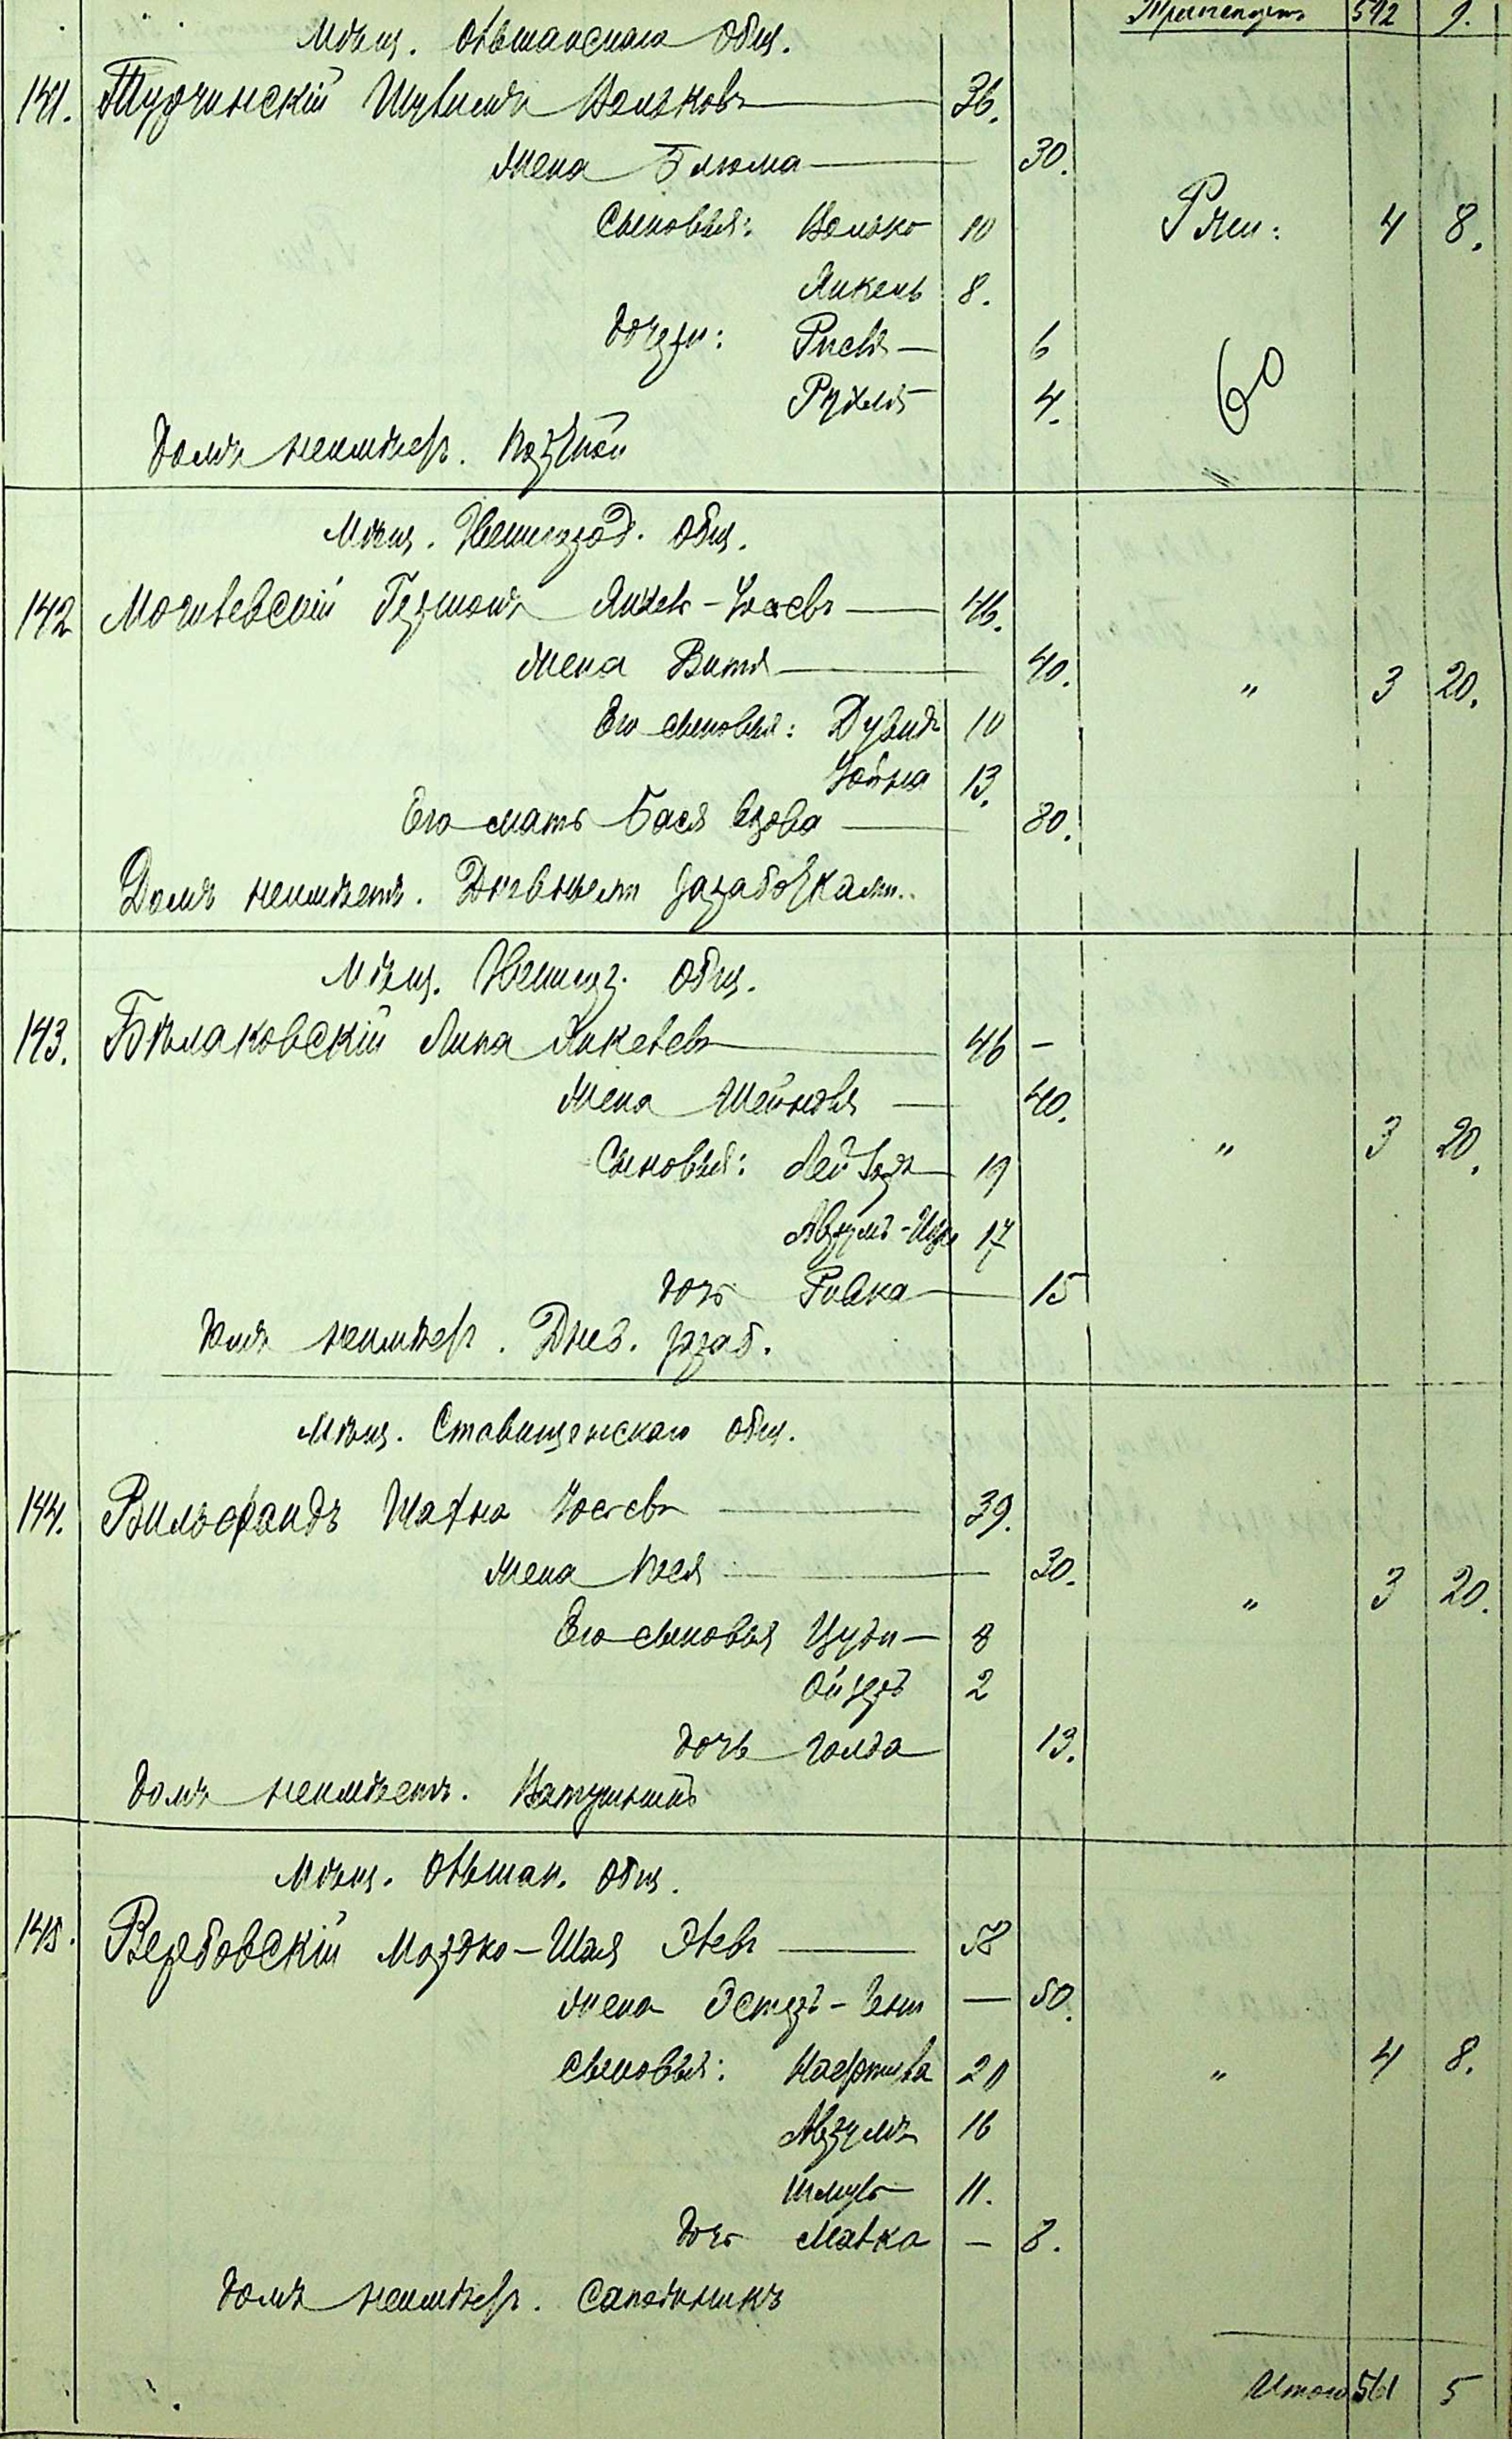 Транспортъ 542 9.
Мѣщ. Ольшанскаго Общ.
141. Турчинскій Шувимъ Вольковъ — 36.
Жена Блюма — 30.
Сыновья: Волько 10 Ржи: 4 8.
Янкель 8.
Дочери: Рися — 6 60
Рухля 4.
Домъ неимѣетъ. Портной
Мѣщ. Немигород. Общ.
142 Могилевскій Гершонъ Янкел-Іосевъ — 46.
Жена Витя — 40. " 3 20.
Его сыновья: Дувидъ 10
Хойна 13.
Его мать Бася — 80.
Домъ неимѣетъ. Дневными заработками..
Мѣщ. Немигор. Общ.
143. Бѣлаковскій Липа Янкелевъ — 46 –
Жена Шейндля — 40. " 3 20.
Сыновья: Лейзоръ 19
Аврумъ-Ицко 17
дочь Ривка — 15
Домъ неимѣетъ. Днев. зараб.
Мѣщ. Ставищенскаго общ.
144. Вильфандъ Шахна Іосевъ — 39.
Жена Песя — 30. " 3 20.
Его сыновья Цудик — 8
Ойзеръ 2
дочь Голда 13.
Домъ неимѣетъ.
Мѣщ. Ольшан. Общ.
145. Вербовскій Мордко-Шая Элевъ — 58
Жена Эстеръ- — 50.
Сыновья: Нафтула 20 " 4 8.
Аврумъ 16
Шмуль 11.
дочь Малка – 8.
Домъ неимѣетъ. Сапожникъ
Итого 561 5